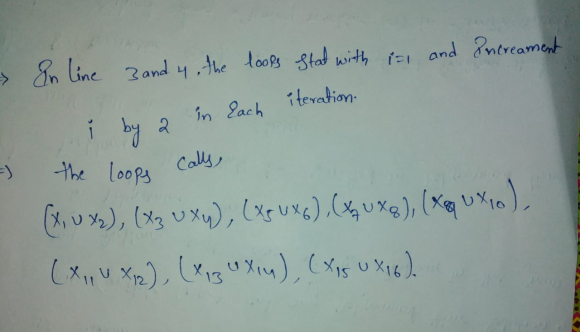 => In line 3 and 4, the loops stat with i=1 and Increament
i by 2 in Each iteration.
=> the loops calls,
(x₁ ∪ x₂), (x₃ ∪ x₄), (x₅ ∪ x₆), (x₇ ∪ x₈), (x₉ ∪ x₁₀),
(x₁₁ ∪ x₁₂), (x₁₃ ∪ x₁₄), (x₁₅ ∪ x₁₆).